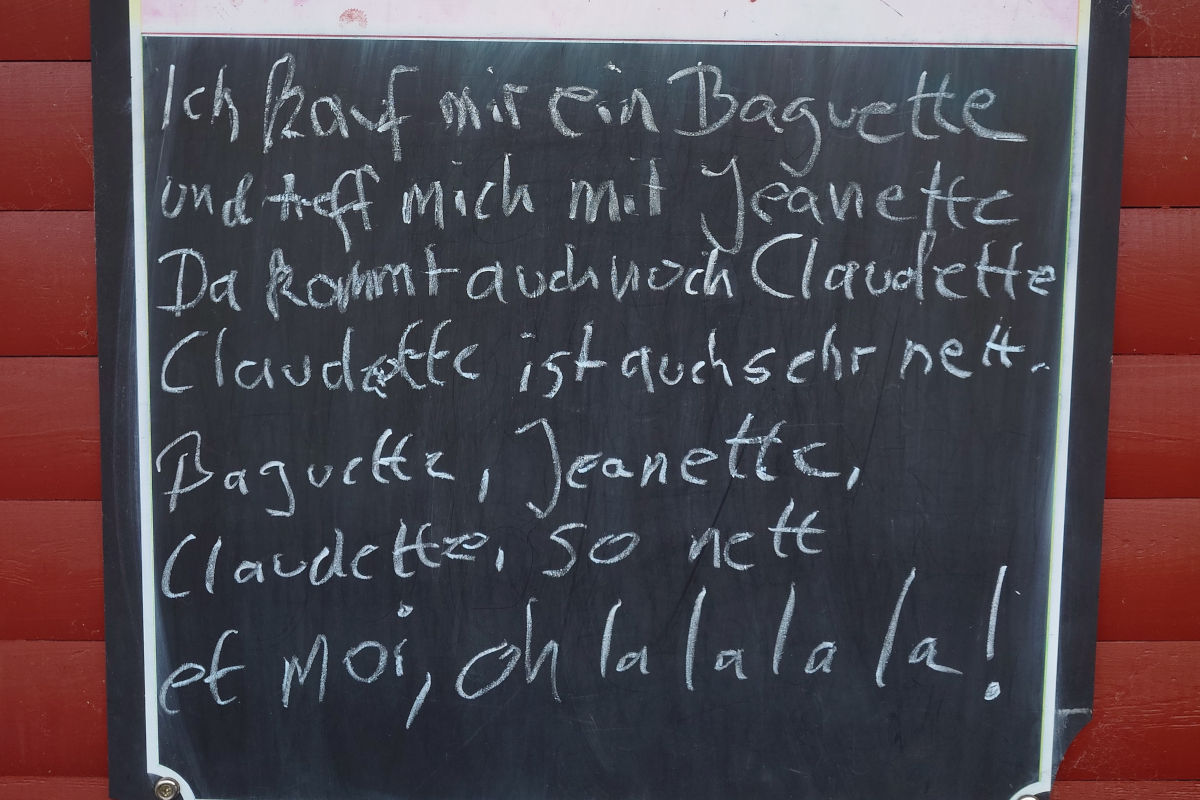 Ich kauf mir ein Baguette
und treff mich mit Jeanette
Da kommt auch noch Claudette
Claudette ist auch sehr nett.
Baguette, Jeanette,
Claudette, so nett
et moi, oh la la la la!